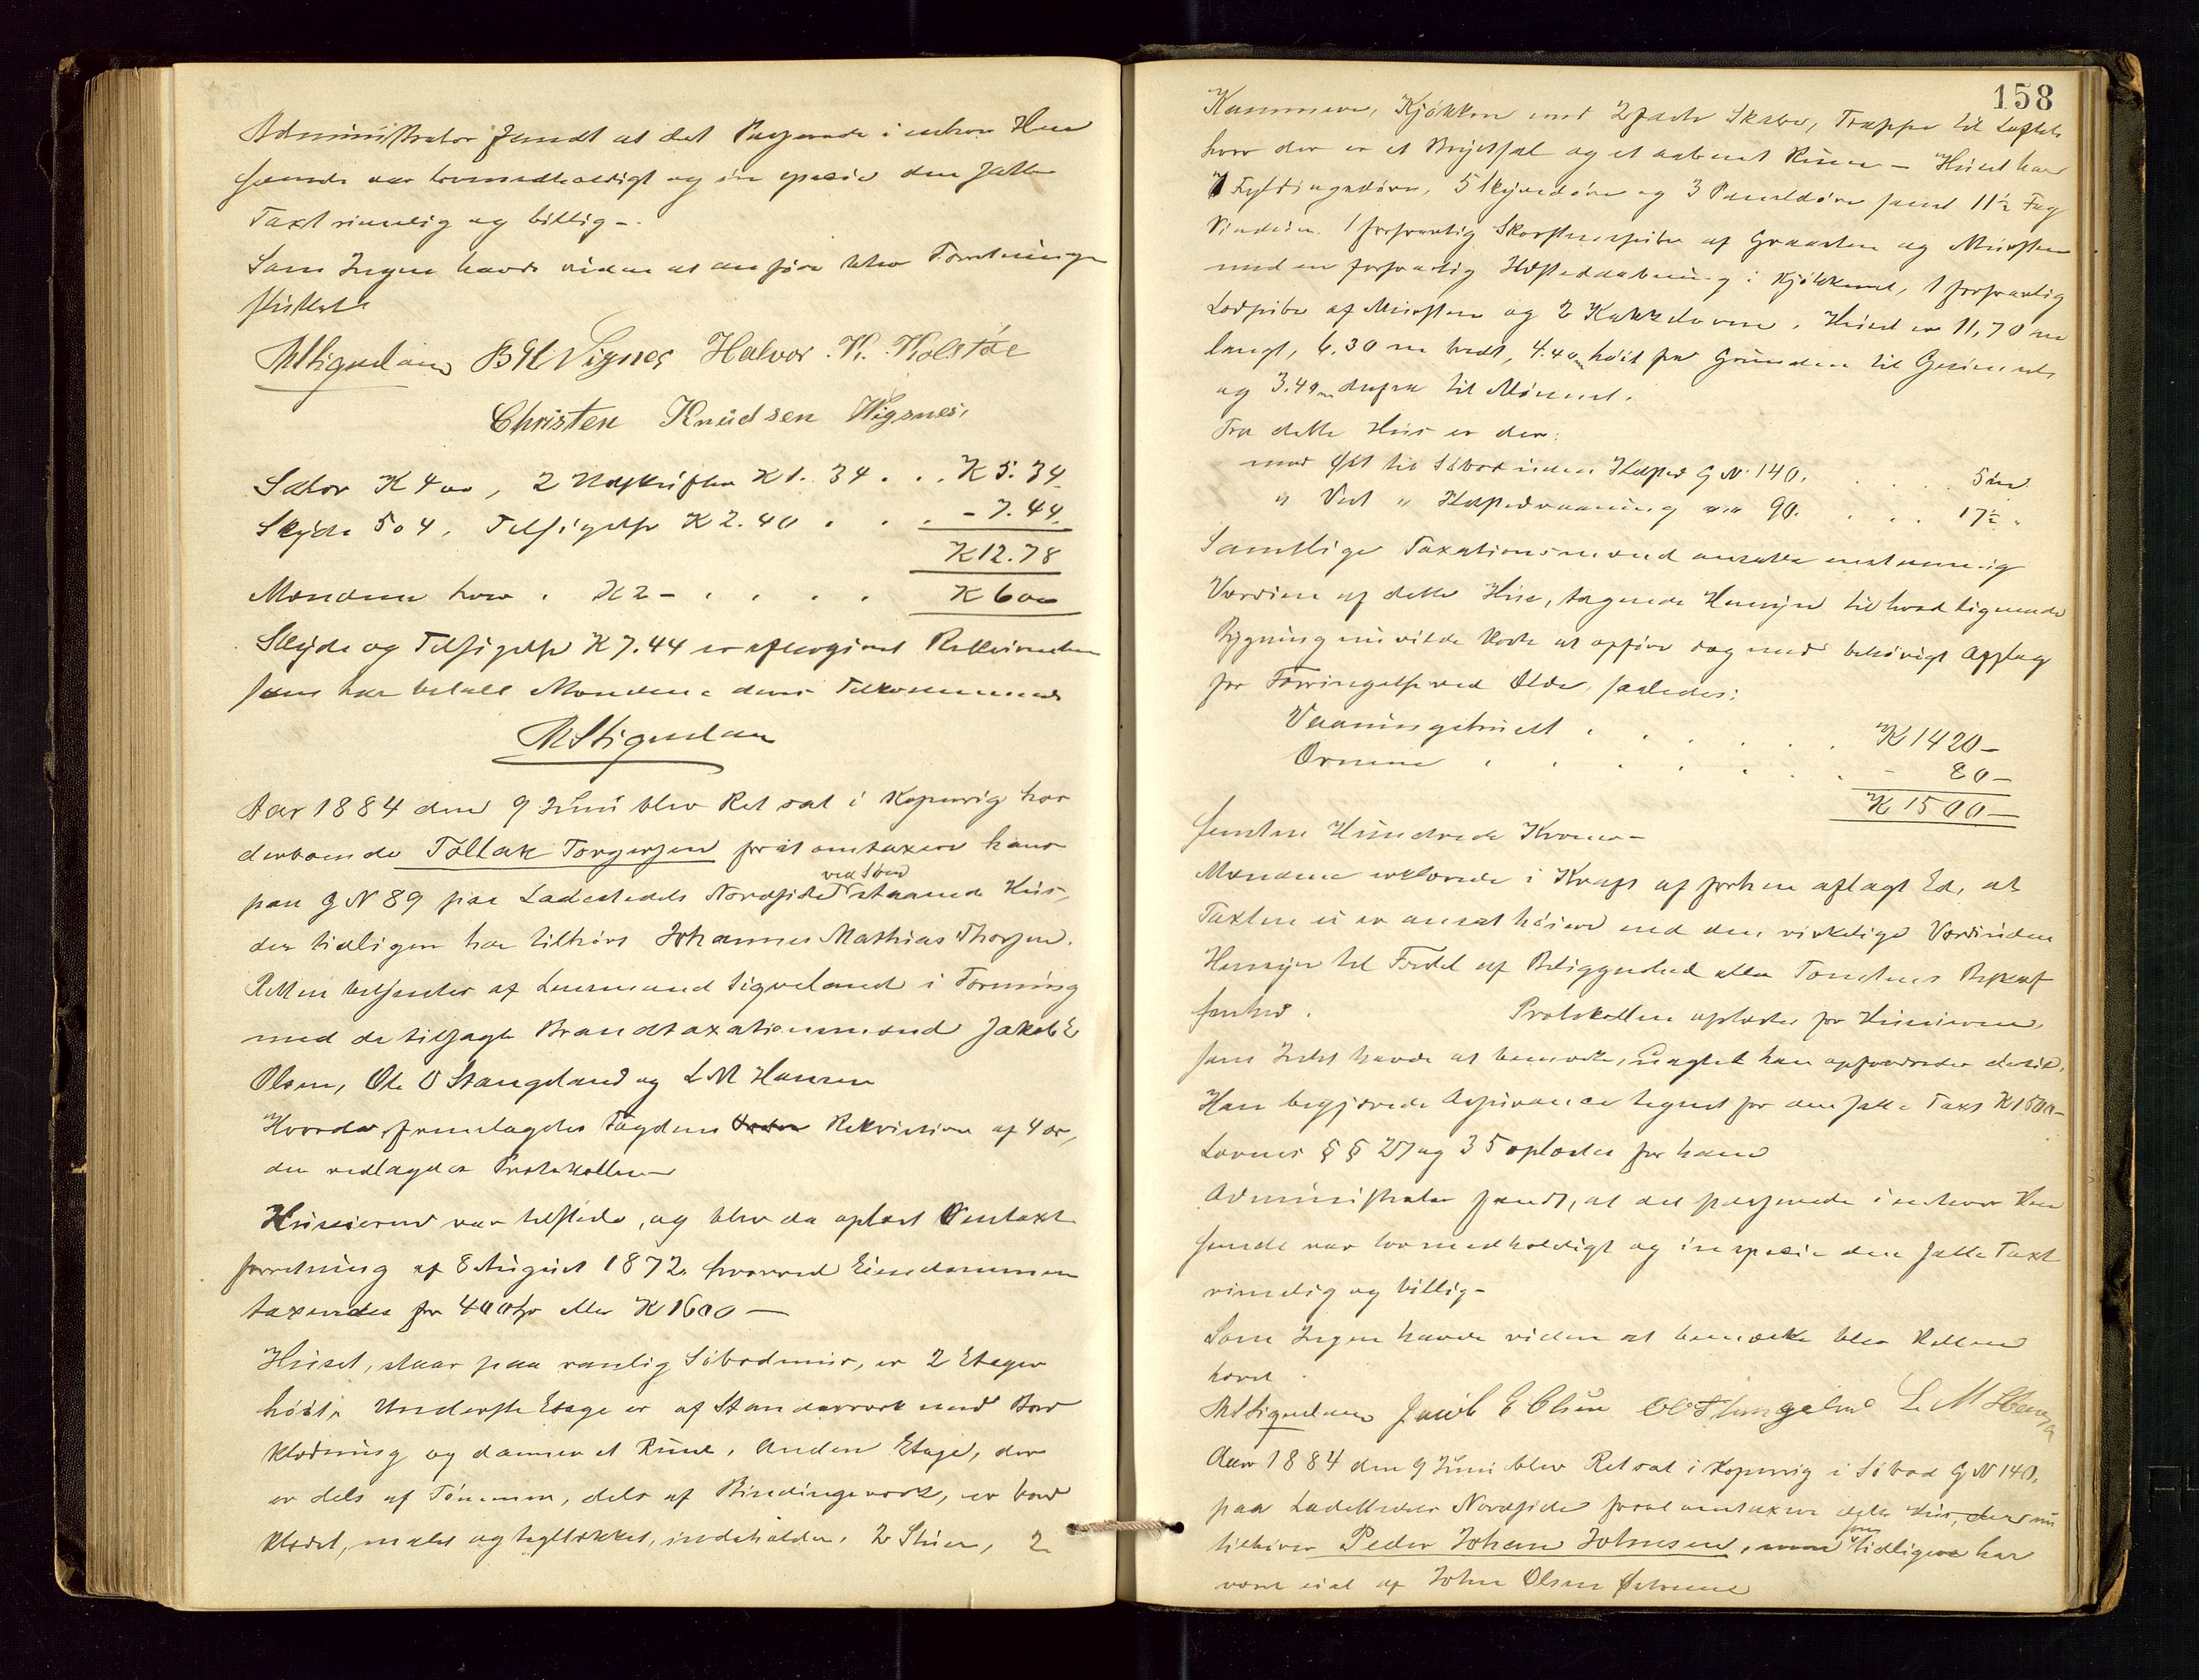 Administrator fandt at det Passerede i enhver Hen
seende var lovmedholdigt og in specie den satte
Taxt rimelig og billig -
Som Ingen havde videre at anføre blev Forretningen
sluttet
MSigveland B H Vignes Halvor. K. Kolstøe
Christen Knudsen Vigsnes,
Salær K 4 00, 2 Udskrifter K 1. 34 . . . K 5. 34
Skyds 504, Tilsigelse K 2. 40 . . . - 7. 44
K 12. 78
Mændene hver . K 2 - . . . . K 6 00
Skyds og Tilsigelse K 7.44 er afkrævet Rekvirenten
som har betalt Mændene deres Tilkommende
MSigveland
Aar 1884 den 9 Juni blev Ret sat i Kopervig hos
derboende Tollak Torgersen for at omtaxere hans
paa G N 89 paa Ladestedets Nordside ved Søen staaende Hus,
der tidligere har tilhørt Johannes Mathias Thorsen.
Retten betjentes af Lensmand Sigveland i Torvning
med de tilsagte Brandtaxationsmænd Jakob E
Olsen, Ole O Stangeland og L M Hansen
Hvorda fremlagdes Fogdens Rekvisition af 4 ds,
der vedlagdes Protokollen
Huseieren var tilstede, og blev da oplæst Omtaxt
forretning af 8 August 1872, hvorved Eiendommen
taxeredes for 400 Sp eller K 1600 —
Huset, staar paa vanlig Søbodmur, er 2 Etager
høit, Underste Etage er af Standerverk med Bord
klædning og danner et Rum, Anden Etage, der
er dels af Tømmer, dels af Bindingsverk, er bord
klædt, malet og tegltækket, indeholder, 2 Stuer, 2
158
Kammere, Kjøkken med 2 faste Skabe, Trappe til Loftet
hvor der er et Brystfal og et aabent Rum - Huset har
7 Fyldingsdøre, 5 Skyvedøre og 3 Paneldøre samt 11½ Fag
Vinduer. 1 forsvarlig Skorstenspibe af Graasten og Mursten
med en forsvarlig Ildstedaabning i Kjøkkenet, 1 forsvarlig
Lodpibe af Mursten og 2 Kakkelovne. Huset er 11,70 m
langt, 6.30 m bredt, 4.40 m høit fra Grunden til Gesimsen
og 3.40 m derfra til Mønnet.
Fra dette Hus er der:
mod Øst til Søbod uden Ildsted G N 140. . . . . 5 m
" Vest " Ildstedvaaning " " 90. . . . 17½ "
Samtlige Taxationsmænd ansatte enstemmig
Værdien af dette Hus, tagende Hensyn til hvad lignende
Bygning nu vilde koste at opføre dog med behørigt Afslag
for Forringelse ved Ælde, saaledes:
Vaaningshuset . . . . . K 1420 -
Ovnene . . . . . . - 80 -
K 1500 -
femten Hundrede Kroner -
Mændene erklærede i Kraft af forhen aflagt Ed, at
Taxten ei er ansat høiere end den virkelige Værdi uden
Hensyn til Fordel af Beliggenhed eller Tomtens Beskaf
fenhed. Protokollen oplæstes for Huseieren,
som Intet havde at bemærke, uagtet han opfordredes dertil.
Han begjærede Assurance tegnet for den satte Taxt K 1500 -
Lovens § § 27 og 35 oplæstes for ham
Administrator fandt, at det passerede i enhver Hen
seende var lovmedholdigt og in specie den satte Taxt
rimelig og billig -
Som Ingen havde videre at bemærke blev Retten
hævet.
MSigveland Jacob E Olsen O O Stangeland L M Hansen
Aar 1884 den 9 Juni blev Ret sat i Kopervig i Søbod G N 140,
paa Ladestedets Nordside for at omtaxere dette Hus, der nu
tilhører Peder Johan Johnsen, som tidligere har
været eiet af John Olsen